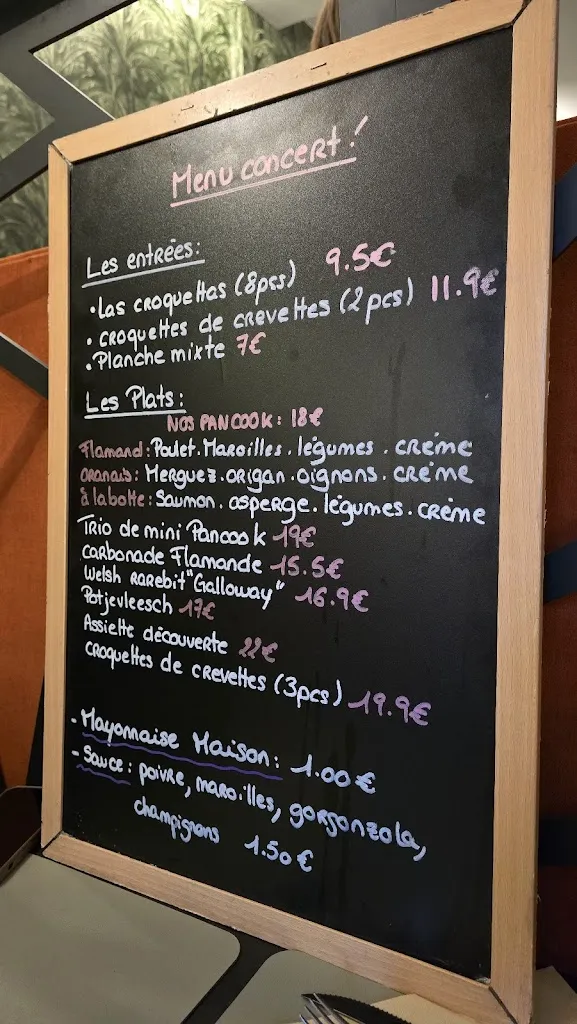 Menu concert!
Les entrées:
• Las croquettas (8pcs) 9.5€
• croquettes de crevettes (2pcs) 11.9€
• Planche mixte 7€
Les Plats:
NOS PANCOOK: 18€
Flamand: Poulet. Maroilles. légumes. crème
Oranais: Merguez. origan. oignons. crème
à la botte: Saumon. asperge. légumes. crème
Trio de mini Pancook 19€
Carbonade Flamande 15.5€
Welsh Rarebit "Galloway" 16.9€
Potjevleesch 17€
Assiette découverte 22€
croquettes de crevettes (3pcs) 19.9€
- Mayonnaise Maison: 1.00€
- Sauce: poivre, maroilles, gorgonzola,
champignons 1.50€